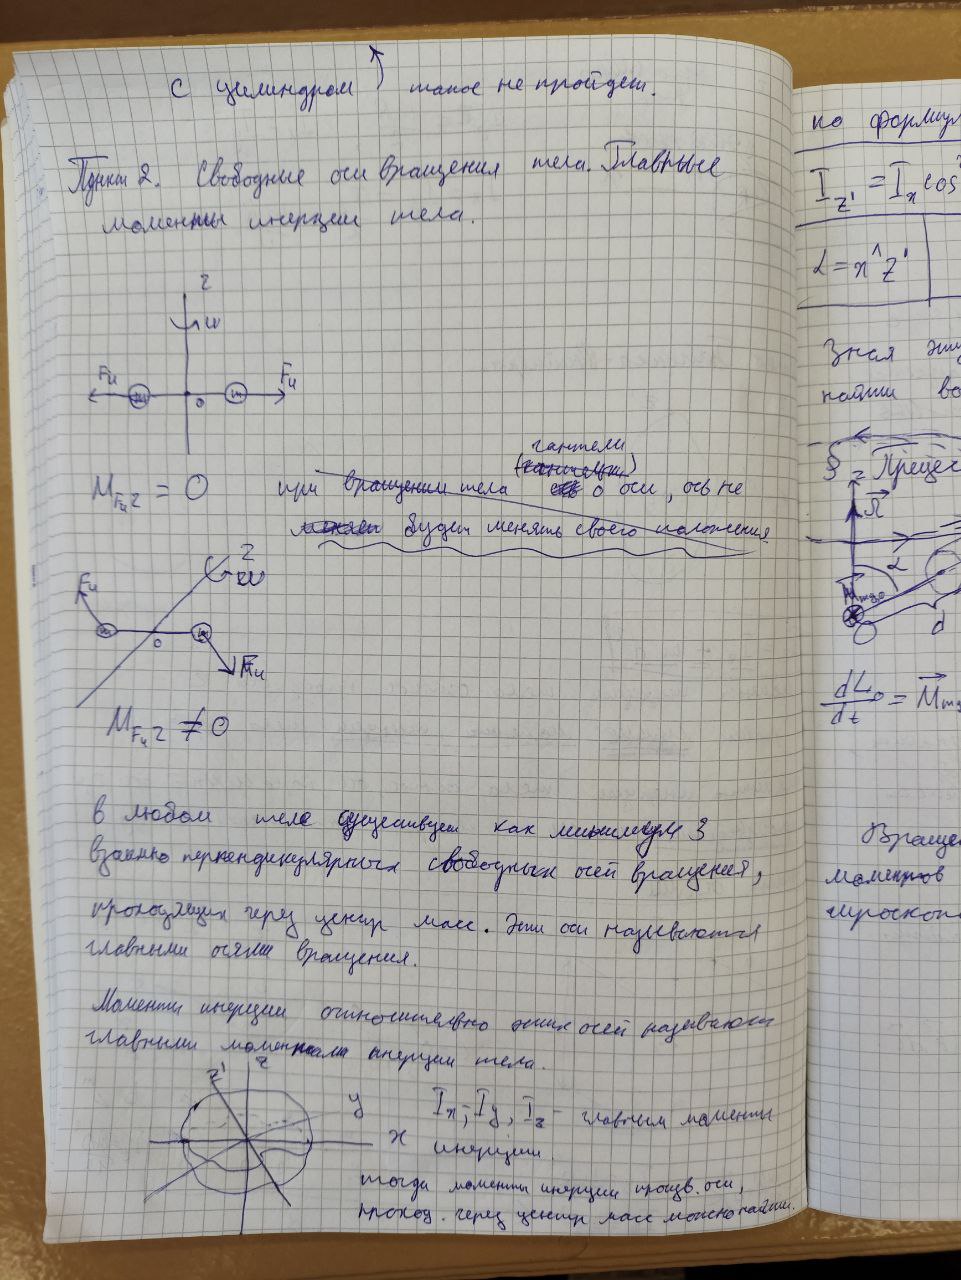 с цилиндром такое не пройдет.
Пункт 2. Свободные оси вращения тела. Главные
моменты инерции тела.
z
ω
Fи m o m Fи
M_{Fи z} = 0
гантели
при вращении тела о оси, ось не
будет менять своего положения
z
ω
Fи
m o m
Fи
M_{Fи z} ≠ 0
в любом теле существует как минимум 3
взаимно перпендикулярных свободных осей вращения,
проходящих через центр масс. Эти оси называются
главными осями вращения.
Моменты инерции относительно этих осей называют
главными моментами инерции тела.
z' z
y
x
Ix, Iy, Iz - главным моменты
инерции.
тогда моменты инерции произв. оси,
проход. через центр масс можно найти.
по формул
I_{z'} = I_x cos²
α = x^z'
Зная эти
найти во
§ Прецес
Ω
α
M_{mgo}
O
d
dLo/dt = M_{mg
Вращен
моментов
гироскопа